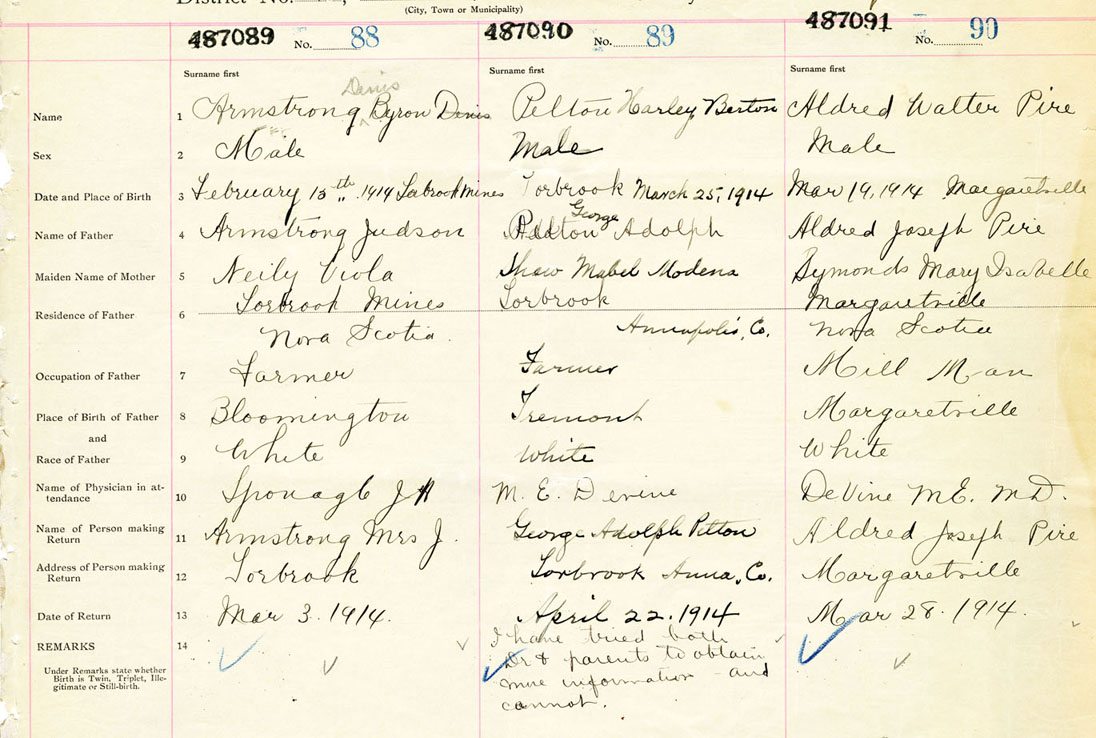 District No.
(City, Town or Municipality)
487089 No. 88 487090 No. 89 487091 No. 90
Surname first Surname first Surname first
Denis
Name 1 Armstrong Byron Denis Pelton Harley Berton Aldred Walter Pire
Sex 2 Male Male Male
Date and Place of Birth 3 February 15th 1914 Torbrook Mines Torbrook March 25, 1914 Mar 19, 1914 Margaretville
George
Name of Father 4 Armstrong Judson Pelton Adolph Aldred Joseph Pire
Maiden Name of Mother 5 Neily Viola Shaw Mabel Modena Symonds Mary Isabelle
Torbrook Mines Torbrook Margaretville
Residence of Father 6
Nova Scotia. Annapolis, Co. Nova Scotia
Occupation of Father 7 Farmer Farmer Mill Man
Place of Birth of Father 8 Bloomington Tremont Margaretville
and
Race of Father 9 White White White
Name of Physician in at-
tendance 10 Sponagle J H M. E. Devine DeVine M.E. M.D.
Name of Person making
Return 11 Armstrong Mrs J. George Adolph Pelton Aldred Joseph Pire
Address of Person making
Return 12 Torbrook Torbrook Anna, Co. Margaretville
Date of Return 13 Mar 3. 1914. April 22. 1914 Mar 28. 1914.
REMARKS 14 I have tried both
Dr & parents to obtain
more information - and
cannot.
Under Remarks state whether
Birth is Twin, Triplet, Ille-
gitimate or Still-birth.